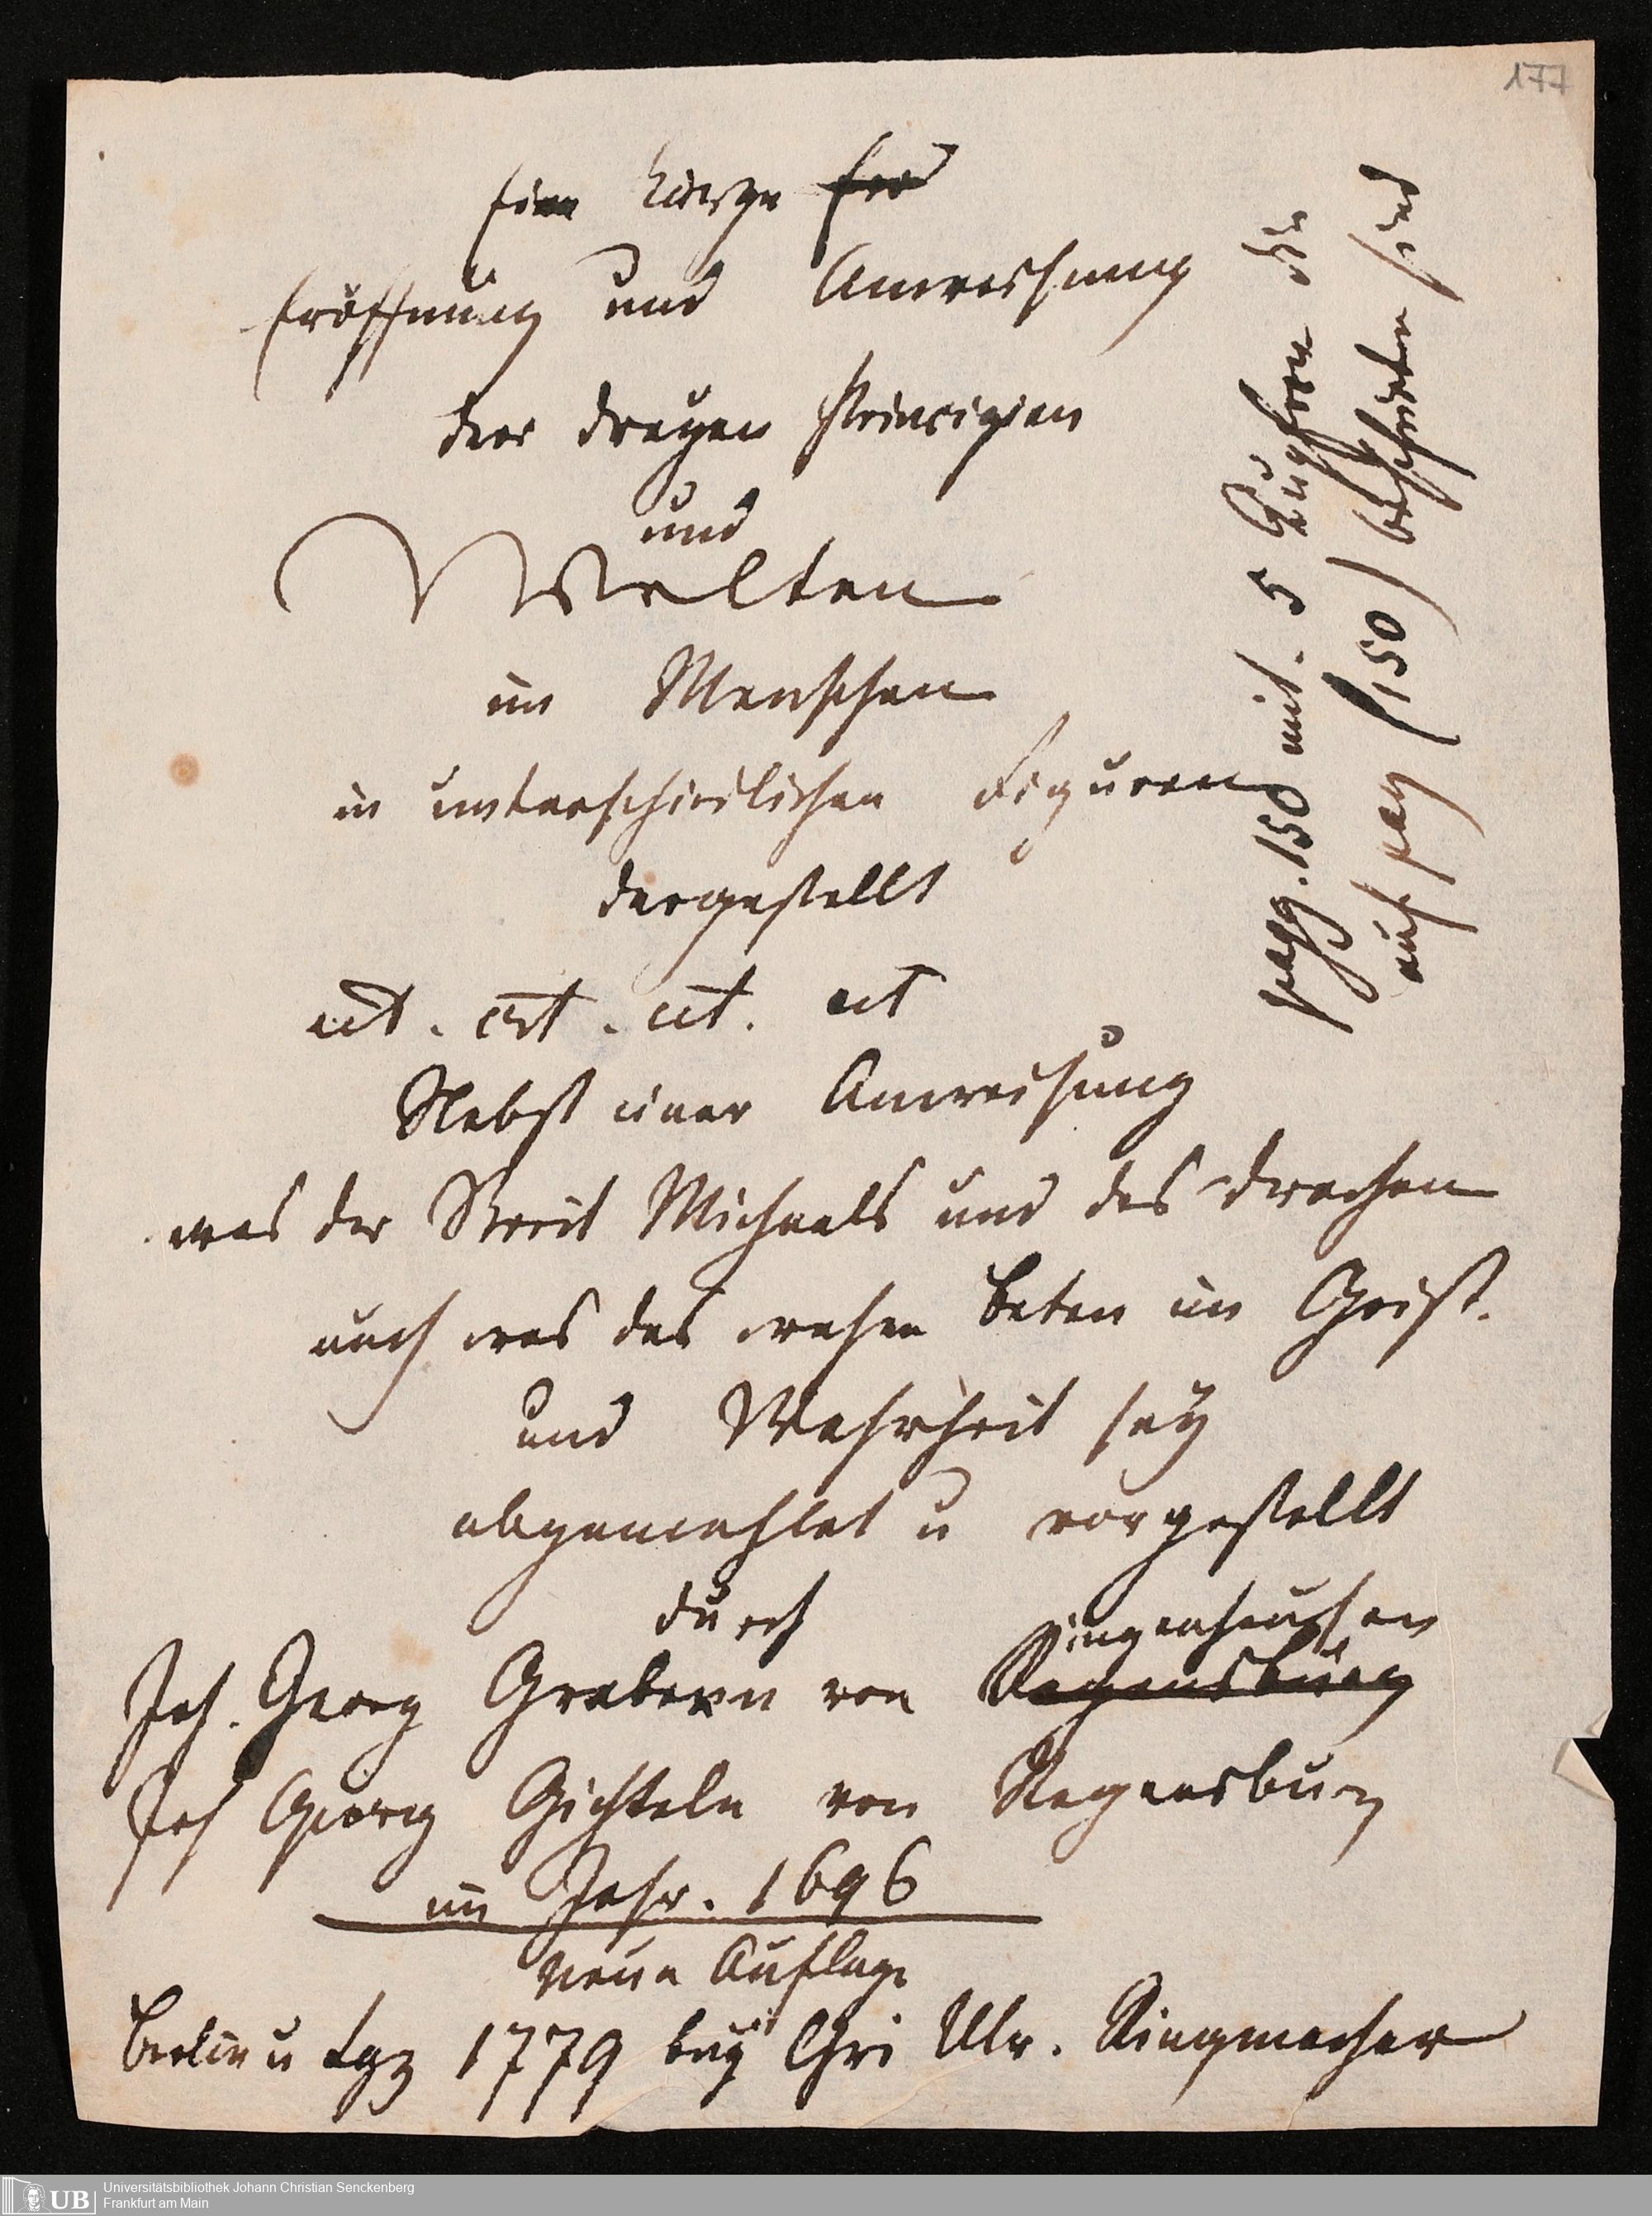 177
Eine kurze Erö
Eröffnung und Anweisung
der dreyen Principien
und
Welten
im Menschen
in unterschiedlichen Figuren
dargestellt
etc. etc. etc. etc
Nebst einer Anweisung
was der Streit Michaels und des Drachen
auch was das wahre Beten im Geist.
und Wahrheit sey
abgemahlet u vorgestellt
durch
Ringenhausen
Joh. Georg Grabern von Regensburg
Joh Georg Gichteln von Regensburg
im Jahr. 1696
Neue Auflage
Berlin u Lpz 1779 bey Chri Ulr. Ringmacher
pagg. 150 mit 5 Kupfern die
auf pag (150) beschrieben sind
UB Universitätsbibliothek Johann Christian Senckenberg
Frankfurt am Main